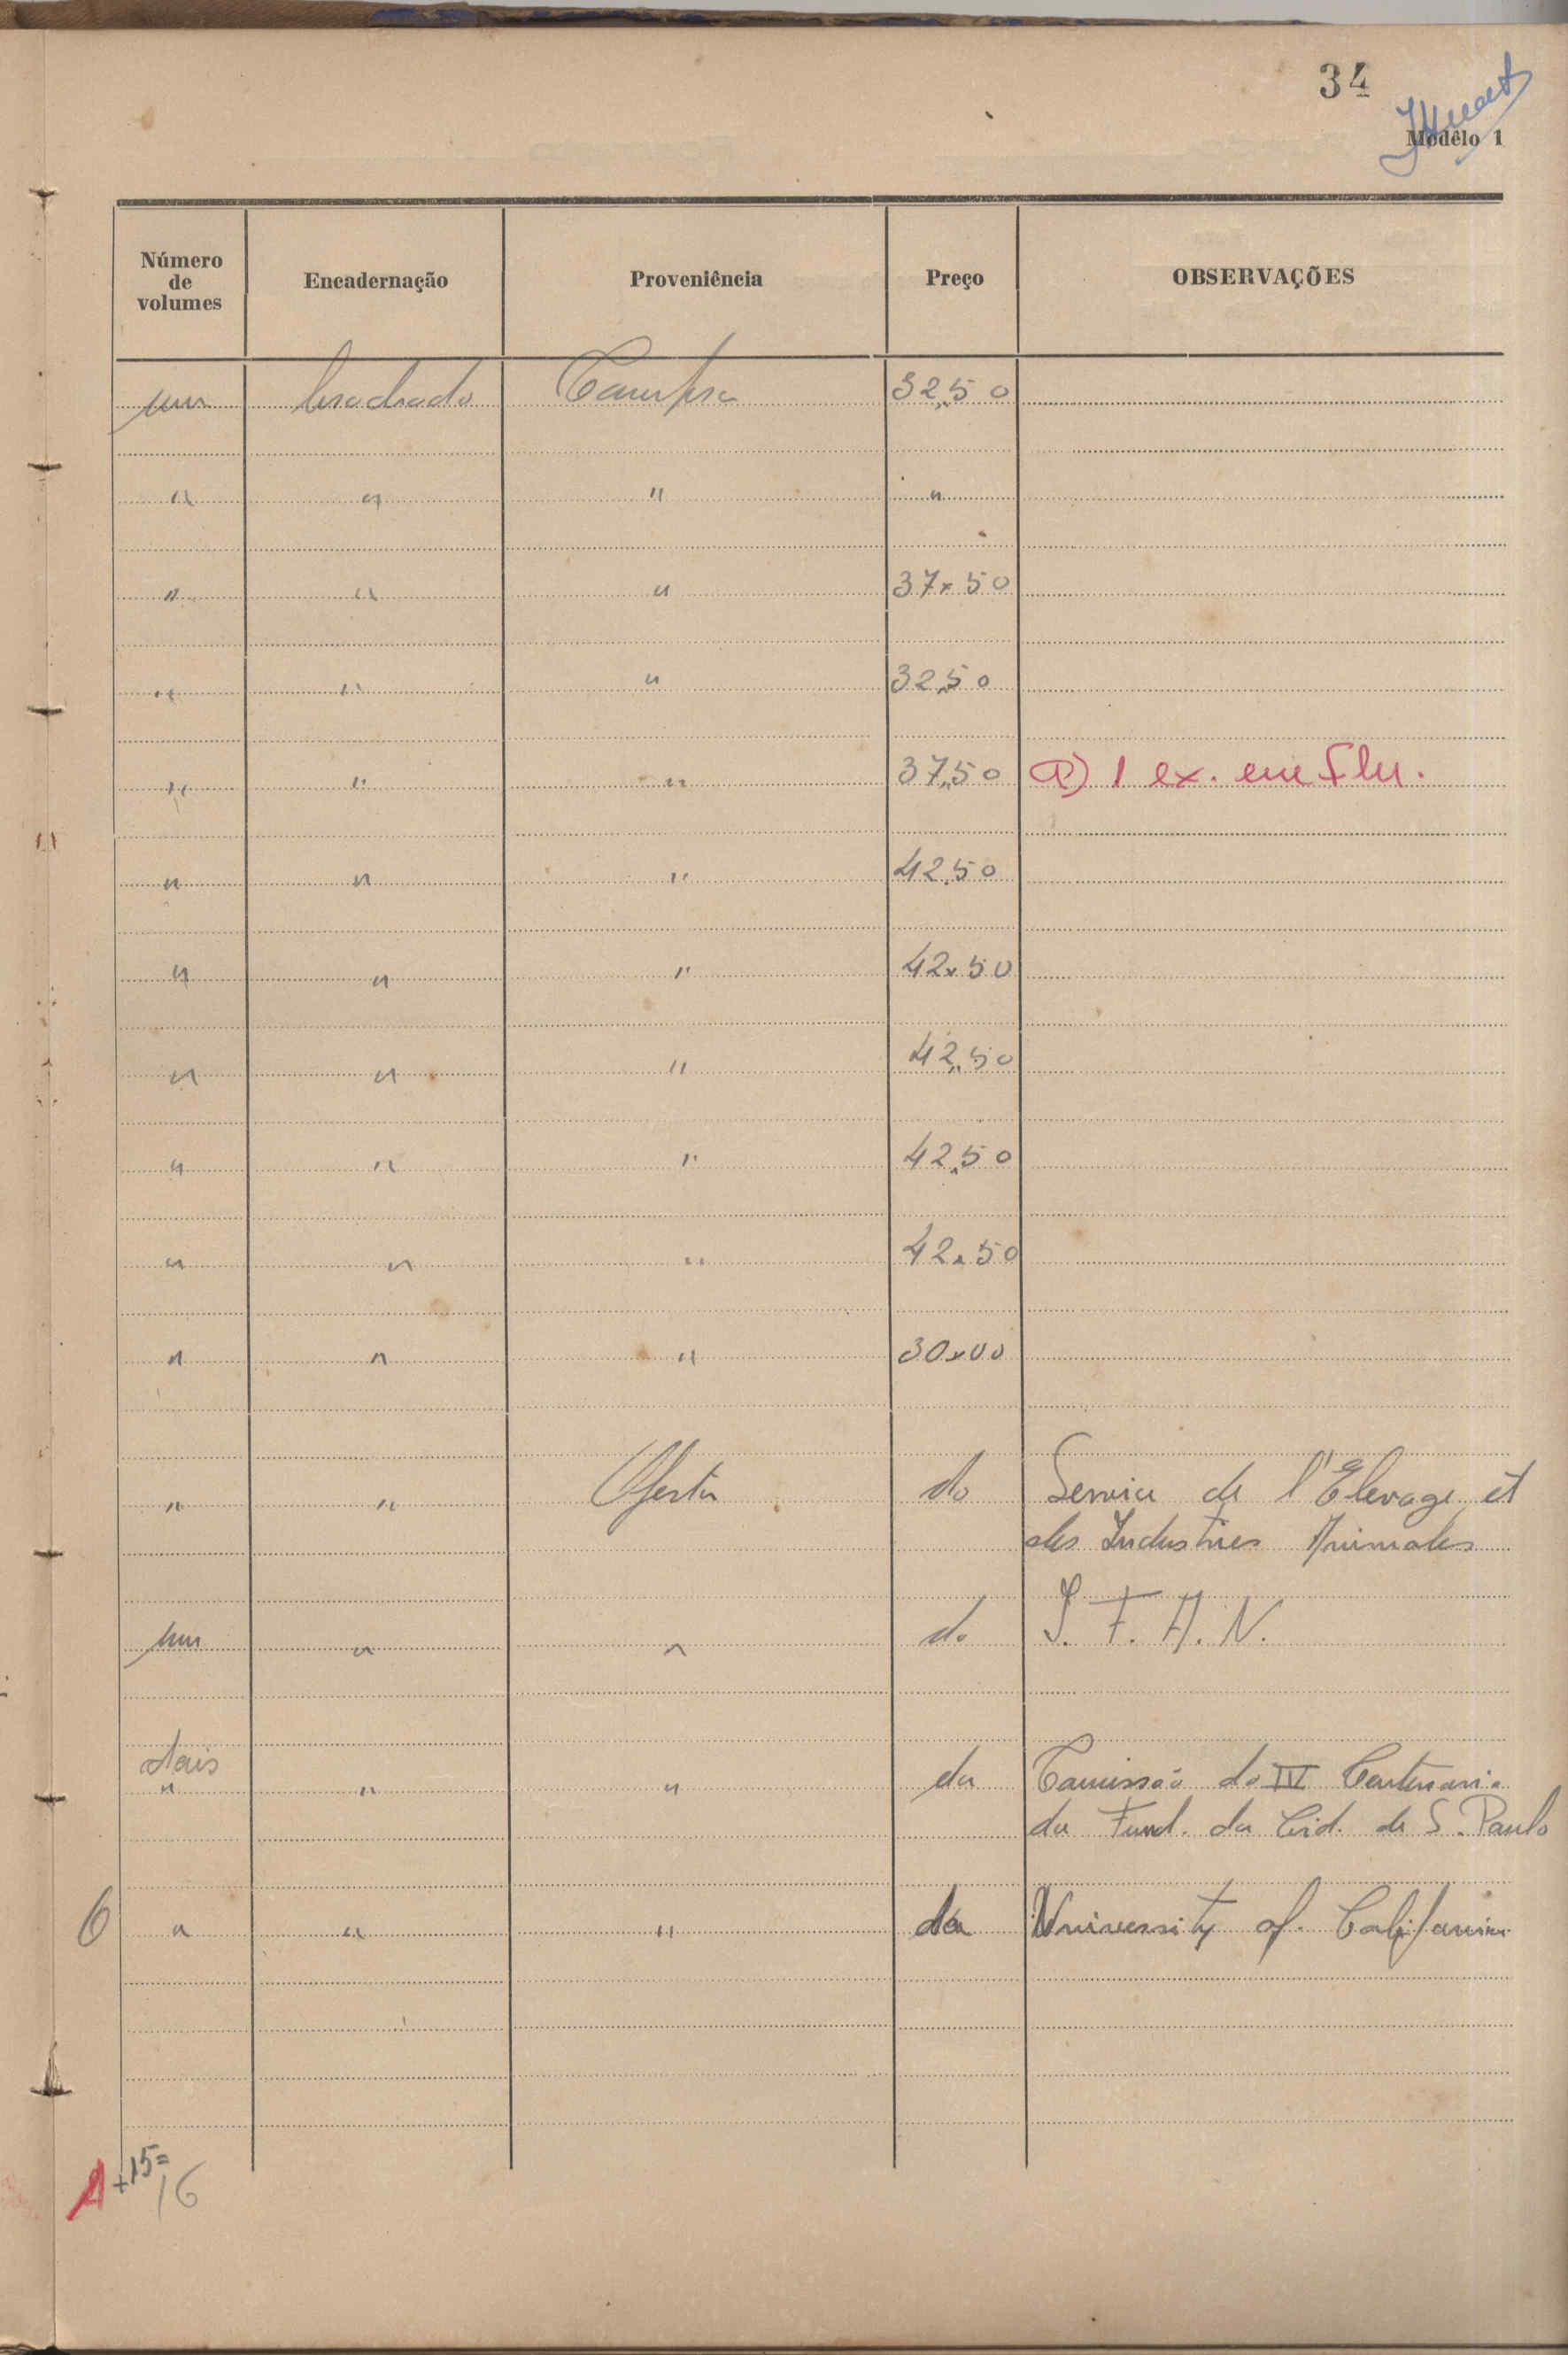 34
Modêlo 1
Número de volumes Encadernação Proveniência Preço OBSERVAÇÕES
um brochado Compra 32,50
" " " "
" " " 37,50
" " " 32,50
" " " 37,50 a) 1 ex. em
" " " 42,50
" " " 42,50
" " " 42,50
" " " 42,50
" " " 42,50
" " " 30,00
" " Oferta do Service de l'Elevage et
des Industries Animales
um " " do I. F. A. N.
dois
" " " da Comissão do IV Centenario
da Fund. da Cid. de S. Paulo
6 " " " da University of California
1 + 15 =
16